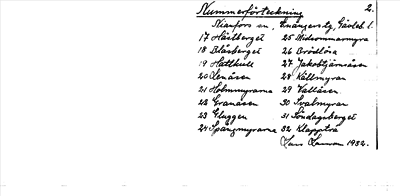 Nummerförteckning 2.
Nianfors sn, Enångers tg, Gävleb. l.
17 Hästberget 25 Midsommarmyra
18 Blåsberget 26 Brötlösa
19 Hattkull 27 Jakobstjärnåsen
20 Lenåsen 28 Källmyran
21 Holmmyrarna 29 Vallåsen
22 Granåsen 30 Svalmyran
23 Gluggen 31 Söndagsberget
24 Spångmyrarna 32 Klappträ
1932.